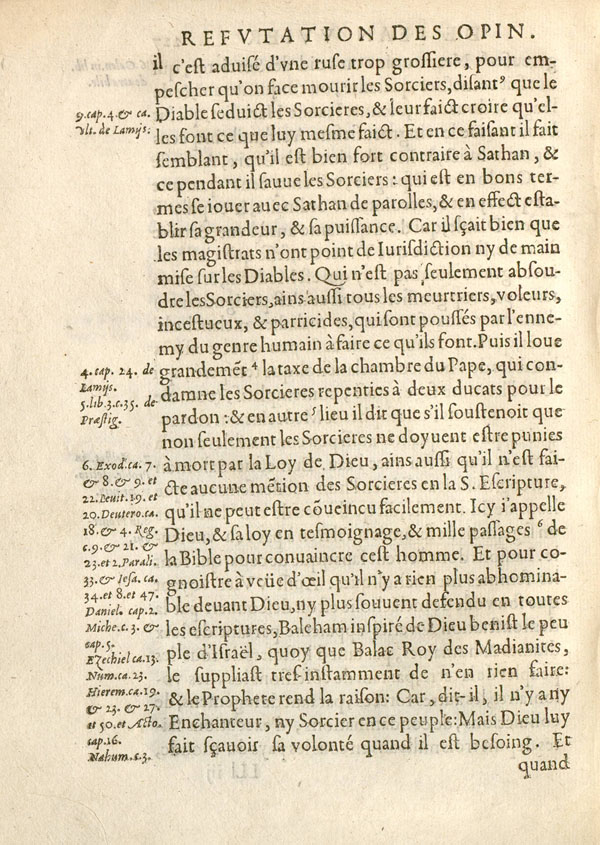 REFVTATION DES OPIN.
il c'est aduisé d'vne ruse trop grossiere, pour em-
pescher qu'on face mourir les Sorciers, disant⁹ que le
Diable seduict les Sorcieres, & leur faict croire qu'el-
les font ce que luy mesme faict. Et en ce faisant il fait
semblant, qu'il est bien fort contraire à Sathan, &
ce pendant il sauue les Sorciers: qui est en bons ter-
mes se iouer auec Sathan de parolles, & en effect esta-
blir sa grandeur, & sa puissance. Car il sçait bien que
les magistrats n'ont point de Iurisdiction ny de main
mise sur les Diables. Qui n'est pas seulement absou-
dre les Sorciers, ains aussi tous les meurtriers, voleurs,
incestueux, & parricides, qui sont poussés par l'enne-
my du genre humain à faire ce qu'ils font. Puis il loue
grandemẽt ⁴ la taxe de la chambre du Pape, qui con-
damne les Sorcieres repenties à deux ducats pour le
pardon: & en autre ⁵ lieu il dit que s'il soustenoit que
non seulement les Sorcieres ne doyuent estre punies
à mort par la Loy de Dieu, ains aussi qu'il n'est fai-
cte aucune mẽtion des Sorcieres en la S. Escripture,
qu'il ne peut estre cõueincu facilement. Icy i'appelle
Dieu, & sa loy en tesmoignage, & mille passages ⁶ de
la Bible pour conuaincre cest homme. Et pour co-
gnoistre à veüe d'œil qu'il n'y a rien plus abhomina-
ble deuant Dieu, ny plus souuent defendu en toutes
les escriptures, Baleham inspiré de Dieu benist le peu
ple d'Israël, quoy que Balac Roy des Madianites,
le suppliast tresinstamment de n'en rien faire:
& le Prophete rend la raison: Car, dit-il, il n'y a ny
Enchanteur, ny Sorcier en ce peuple: Mais Dieu luy
fait sçauoir sa volonté quand il est besoing. Et
quand
9. cap. 4. & ca.
vlt. de Lamijs.
4. cap. 24. de
Lamijs.
5. lib. 3. c. 35. de
Præstig.
6. Exod. ca. 7.
& 8. & 9. et
22. Leuit. 19. et
20. Deutero. ca.
18. & 4. Reg.
c. 9. & 21. &
23. et 2. Parali.
33. & Iesa. ca.
34. et 8. et 47.
Daniel. cap. 2.
Miche. c. 3. &
cap. 5.
Ezechiel ca. 13.
Num. ca. 23.
Hierem. ca. 19.
& 23. & 27.
et 50. et Acto.
cap. 16.
Nahum. c. 3.